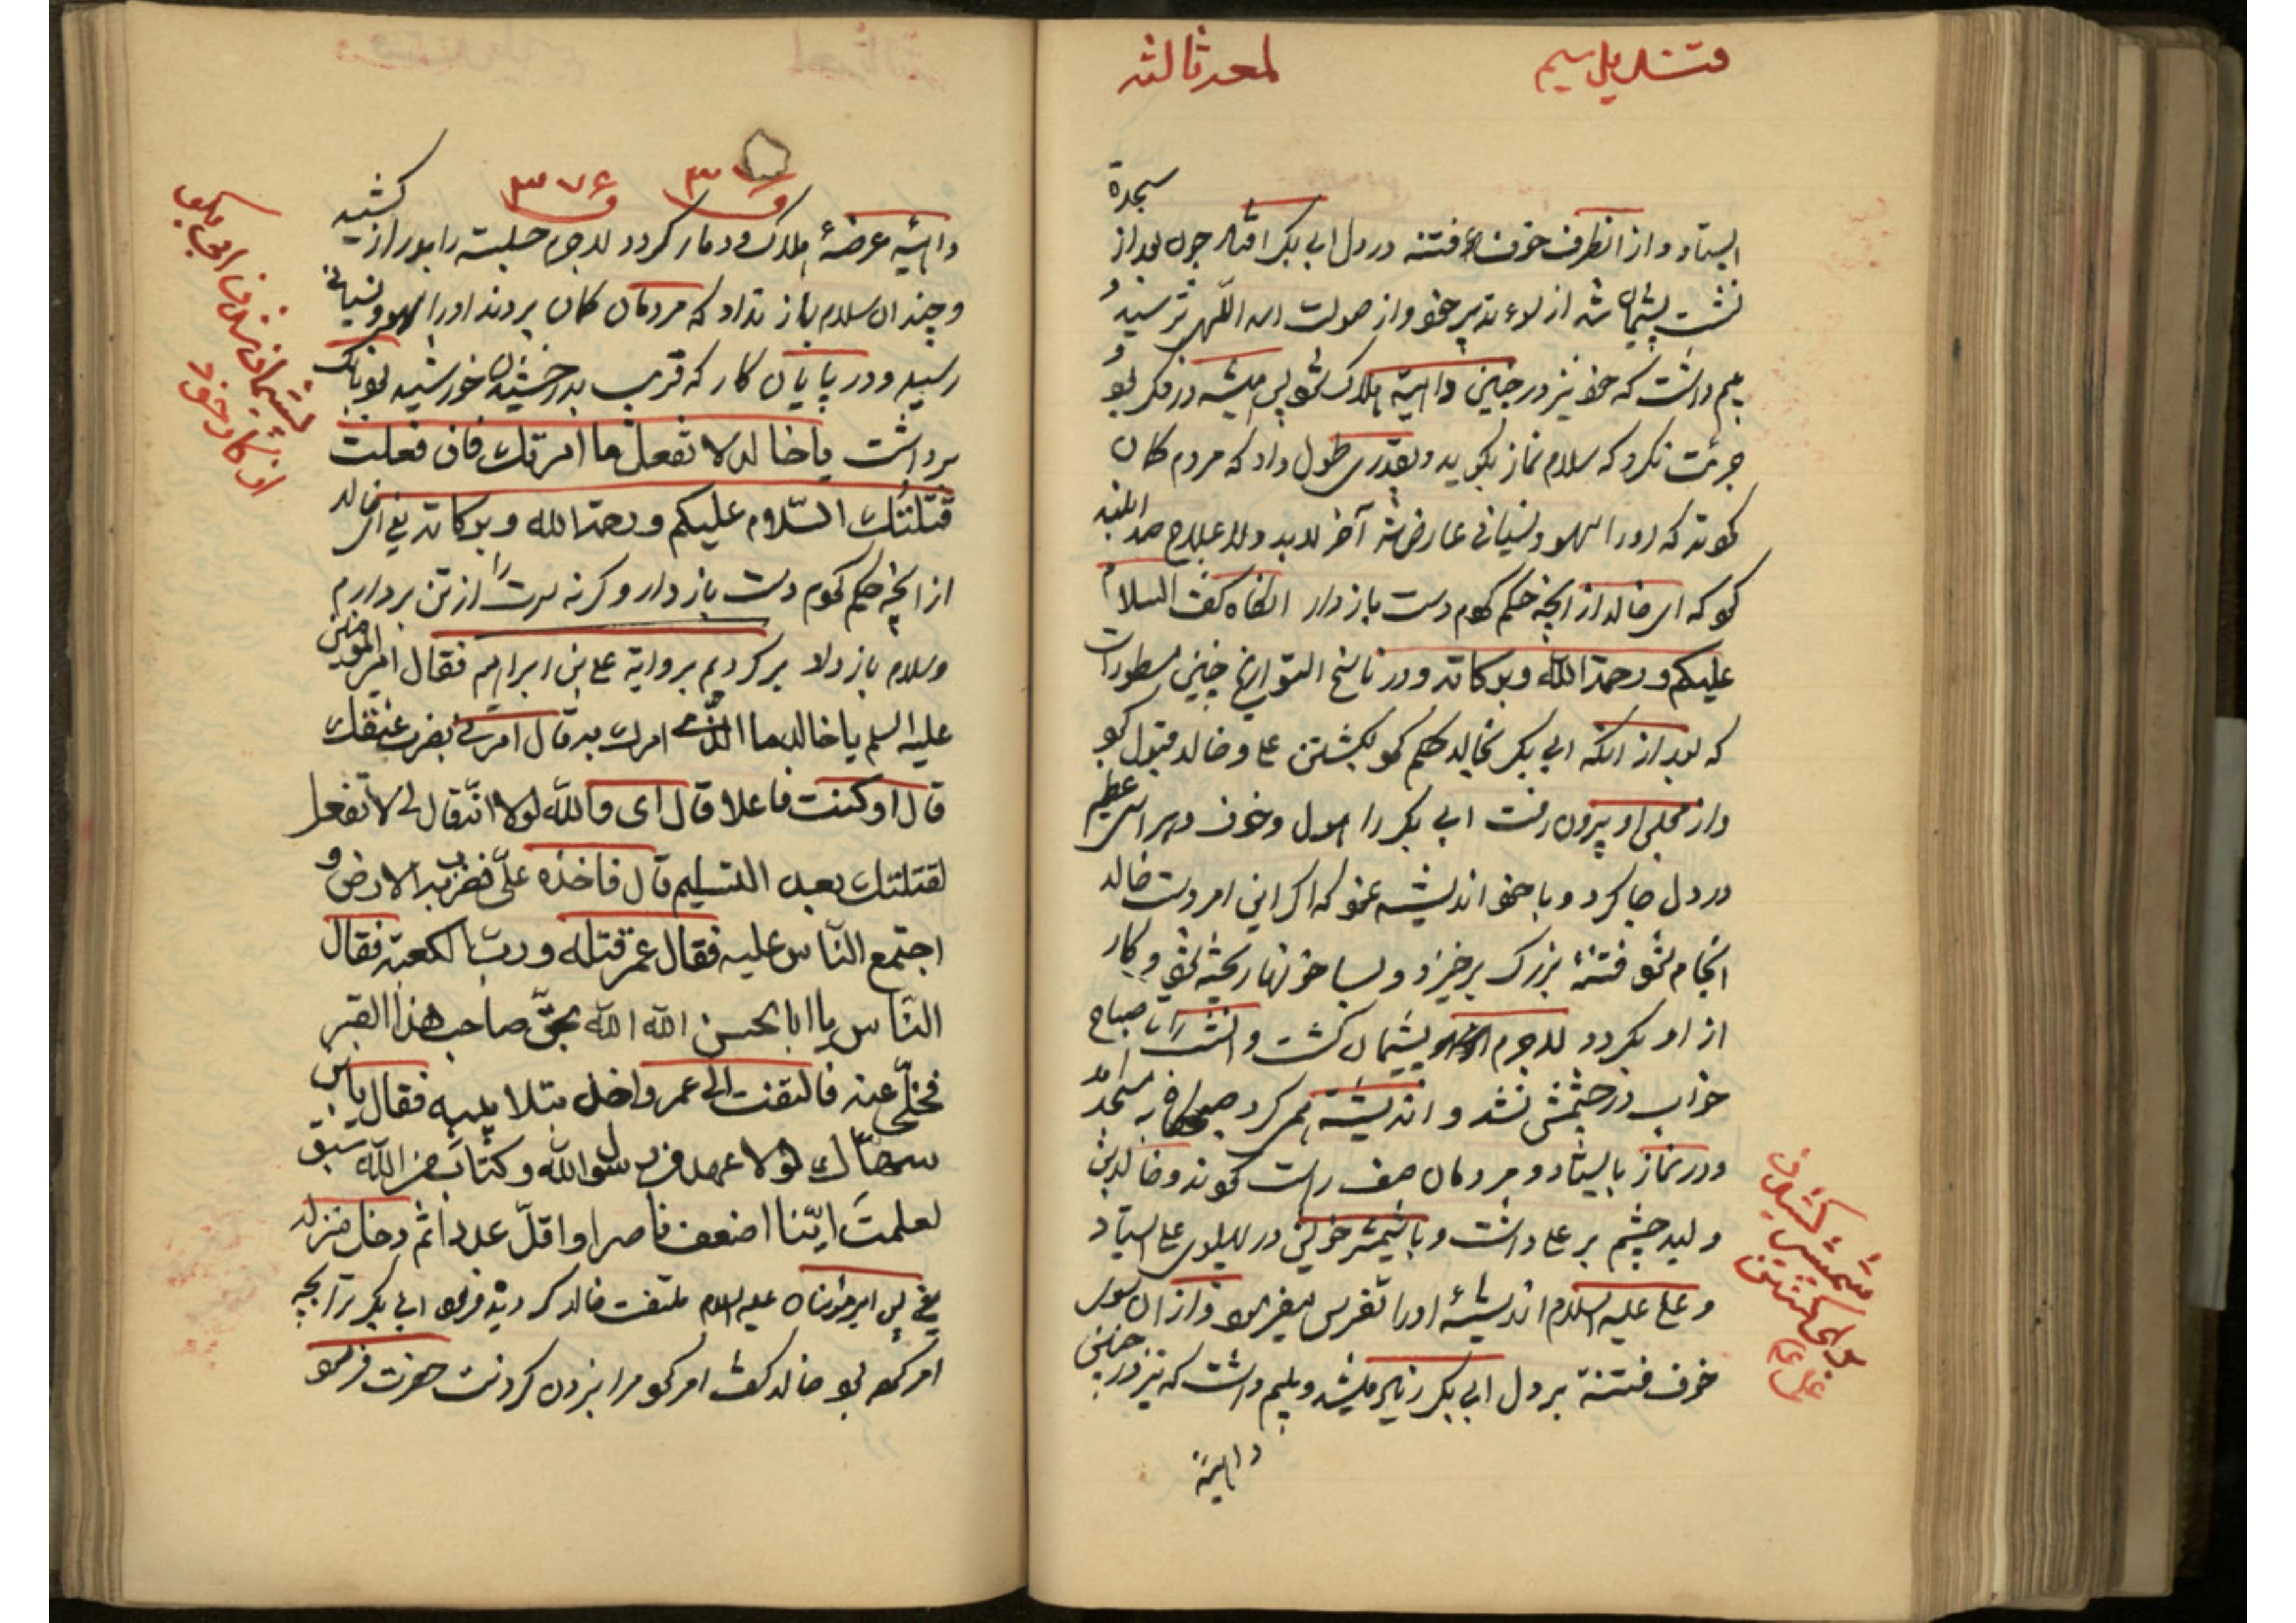 لمعه ثالثه
سجدة
ایستاد و از انطرف خوف فتنه در دل ابی بکر افتاد چون بعد از
نشست پشیمان شد از تدبیر خود و از صولت اسد اللهی ترسید و
بیم داشت که خود نیز در چنین داهیة هلاک شود پس همیشه در فکر بود و
جرئت نکرد که سلام نماز بگوید و بقدری طول داد که مردم کان
کردند که او را سهو و نسیانی عارض شد آخر لابد و لا علاج صدا بلند
کرد که ای خالد از آنچه حکم کردم دست باز دار انگاه گفت السلام
علیکم و رحمة الله و برکاته و در ناسخ التواریخ چنین مسطور است
که بعد از انکه ابی بکر بخالد حکم کرد بکشتن علی و خالد قبول کرد
و از مجلس او بیرون رفت ابی بکر را هول و خوف و هراسی عظیم
در دل جا کرد و با خود اندیشه نمود که اگر این امر بدست خالد
انجام شود فتنهٔ بزرگ برخیزد و بسا خونها ریخته شود و کار
از او بگردد لاجرم پشیمان گشت و انشب را تا صباح
خواب در چشمش نشد و اندیشه همی کرد صباح به مسجد آمد
و در نماز بایستاد و مردمان صف راست کردند و خالد بن
ولید چشم بر علی داشت و با شمشیر خویش در پهلوی علی ایستاد
و علی علیه السلام اندیشهٔ او را تفرس میفرمود و از ان سوی
خوف فتنة بر دل ابی بکر زیاد میشد و بیم داشت که نیز در چنین
داهیة
شمشیر کشیدن
۳۷۶
داهیه عرضهٔ هلاک و دمار گردد لاجرم جلسه را بدراز کشید
و چندان سلام باز نداد که مردمان کان بردند او را سهو و نسیانی
رسید و در پایان کار که قریب بدرخشیدن خورشید بود بانک
برداشت یا خالد لا تفعل ما امرتك فان فعلت
قتلتك السّلام علیکم و رحمة الله و برکاته یعنی ای خالد
از آنچه حکم کردم دست باز دار و کرنه سرت را از تن بردارم
و سلام باز داد برگردیم بروایة علی بن ابراهیم فقال امیر المؤمنین
علیه السلم یا خالد ما الذی امرك به قال امرنی بضرب عنقك
قال او كنت فاعلا قال ای والله لولا انّه قال لی لا تفعل
لقتلتك بعد التسلیم قال فاخذه علیّ فضرب به الارض و
اجتمع النّاس علیه فقال عمر قتله و ربّ الكعبة فقال
النّاس یا ابا الحسن الله الله بحقّ صاحب هذا القبر
فخلّی عنه فالتفت الی عمر و اخذ بتلابیبه فقال یابن
صهّاك لولا عهد من رسول الله و كتاب من الله سبق
لعلمت ایّنا اضعف ناصرا و اقلّ عددا ثمّ دخل منزله
یعنی پس امیرمؤمنان علیه السلام ملتفت خالد گردید فرمود ابی بکر ترا بچه
امر کرده بود خالد گفت امر کرد مرا بزدن گردنت حضرت فرمود
پشیمان شدن ابی بکر
از کار خود